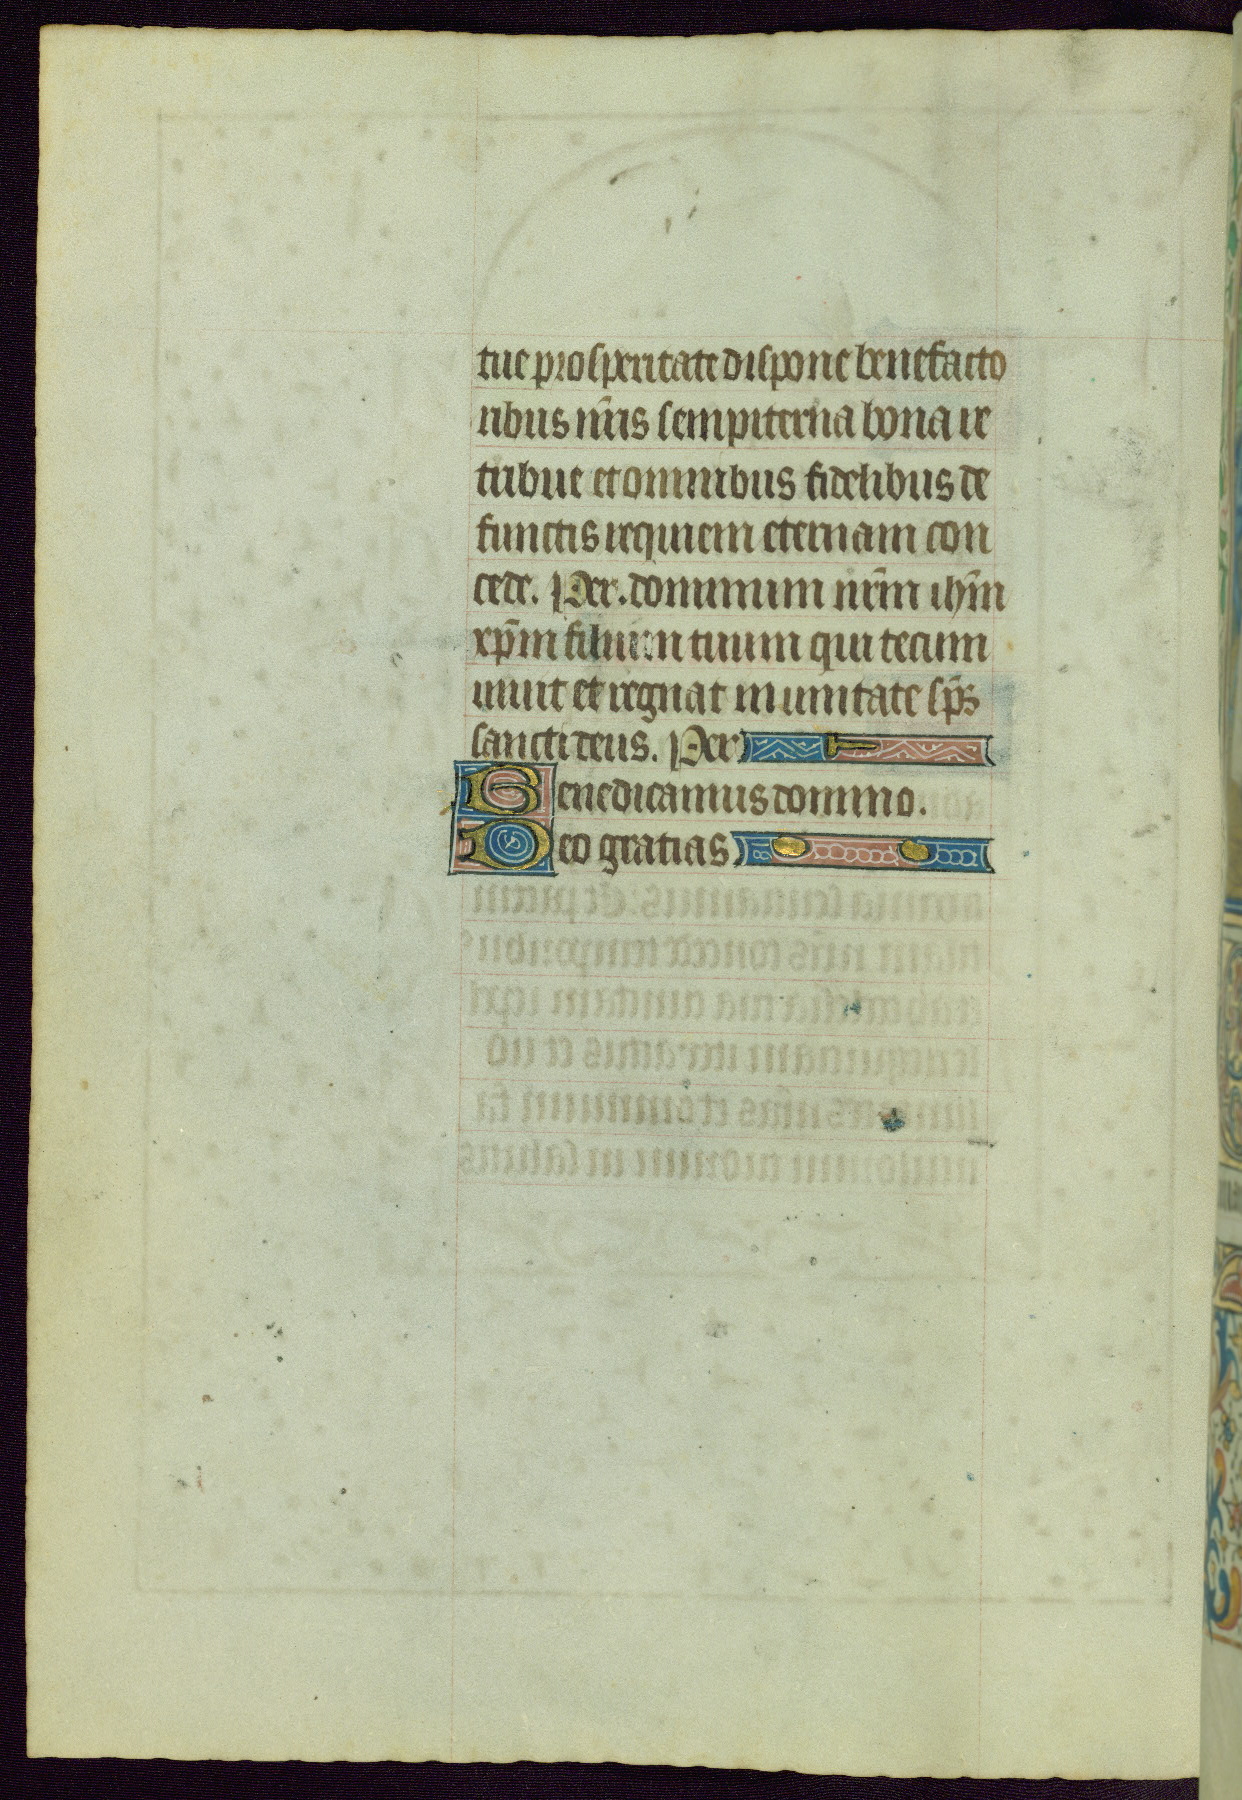 tue prosperitate dispone benefacto
ribus nr̄is sempiterna bona re
tribue et omnibus fidelibus de
functis requiem eternam con
cede. Per. dominum nr̄m ihm̄
xp̄m filium tuum qui tecum
uiuit et regnat in unitate sp̄s
sancti deus. Per
Benedicamus domino.
Deo gratias